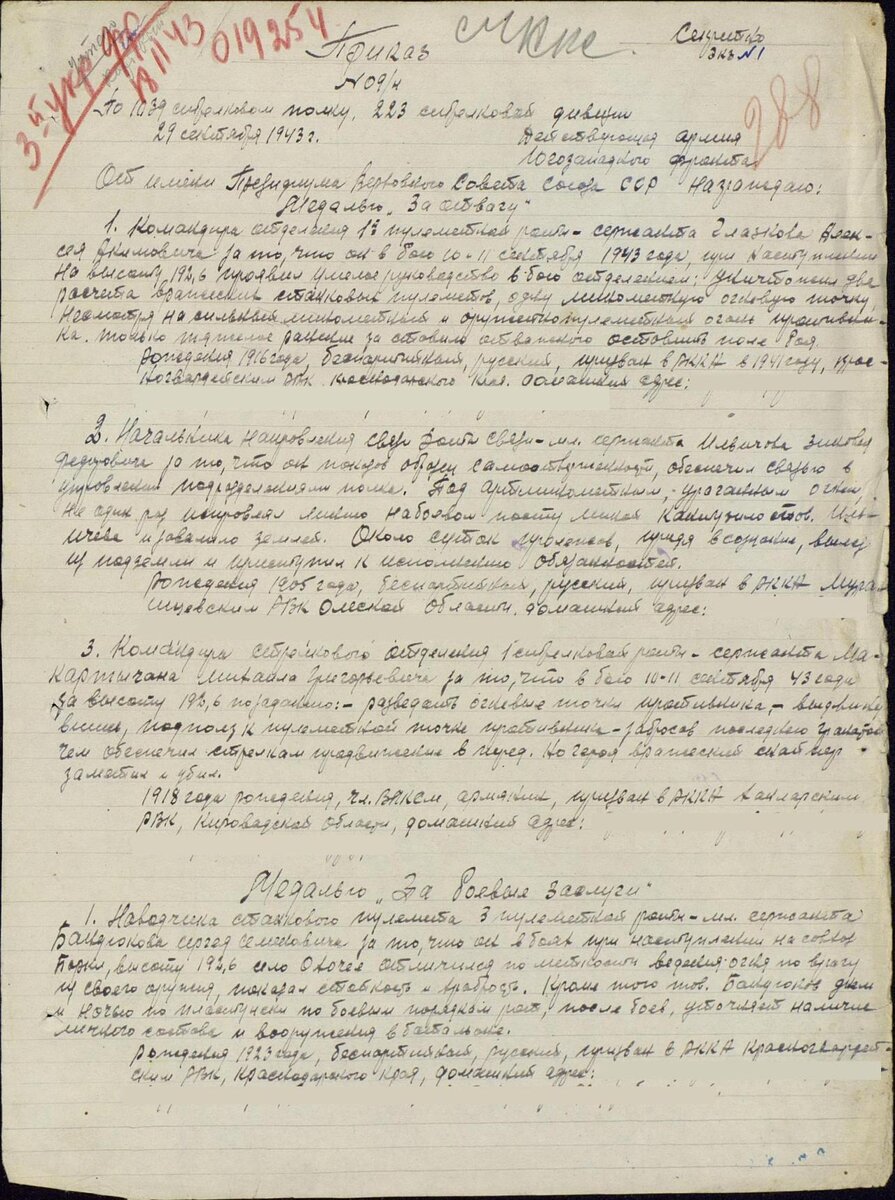 3й укр фр
18 11 43
019254
Секретно
Экз №1
Приказ
№ 09/н
288
По 1039 стрелковом полку, 223 стрелковой дивизии
29 сентября 1943 г.
Действующая армия
Югозападного фронта
От имени Президиума Верховного Совета Союза ССР награждаю:
Медалью „За отвагу"
1. Командира отделения пулеметной роты - сержанта Глазкова Алек-
сея Акимовича за то, что он в бою 10-11 сентября 1943 года, при наступлении
на высоту 192,6 проявил умелое руководство в бою отделением: уничтожил два
расчета вражеских станковых пулеметов, одну минометную огневую точку,
несмотря на сильный минометный и оружейнопулеметный огонь противни-
ка. Только тяжелое ранение заставило отважного оставить поле боя.
Рождения 1916 года, беспартийный, русский, призван в РККА в 1941 году, Крас-
ногвардейским РВК Краснодарского края. домашний адрес:
2. Начальника направления связи роты связи - мл. сержанта Ильичова Зиновия
Федотовича за то, что он показав образец самоотверженности, обеспечил связью в
управлении подразделениям полка. Под артминометным, ураганным огнем,
не один раз исправлял линию на боевом посту миной Ильи-
чева завалило землей. Около суток пролежав, придя в сознание, вылез
из подземли и приступил к исполнению обязанностей.
Рождения 1905 года, беспартийный, русский, призван в РККА
РВК Омской области. домашний адрес:
3. Командира стрелкового отделения 1 стрелковой роты - сержанта Ма-
картычана Михаила Григорьевича за то, что в бою 10-11 сентября 43 года
за высоту 192,6 по заданию: - разведать огневые точки противника, - выдвину
вшись, подполз к пулеметной точке противника - забросав последнюю гранатой
чем обеспечил стрелкам продвижение в перед. Но героя вражеский снайпер
заметил и убил.
1918 года рождения, чл. ВЛКСМ, армянин, призван в РККА Ханларским
РВК, Кировадской области, домашний адрес:
Медалью „За боевые заслуги"
1. Наводчика станкового пулемета 3 пулеметной роты - мл. сержанта
Бандюкова Сергея Семеновича за то, что он в боях при наступлении на совхоз
высоту 192,6 село Охочее отличился по меткости ведения огня по врагу
из своего оружия, показал стойкость и храбрость. Кроме того тов. Бандюков днем
и ночью по пластунски по боевым порядкам рот, после боев, уточняет наличие
личного состава и вооружения в батальоне.
Рождения 1923 года, беспартийный, русский, призван в РККА Красногвардей-
ским РВК, Краснодарского края, домашний адрес: